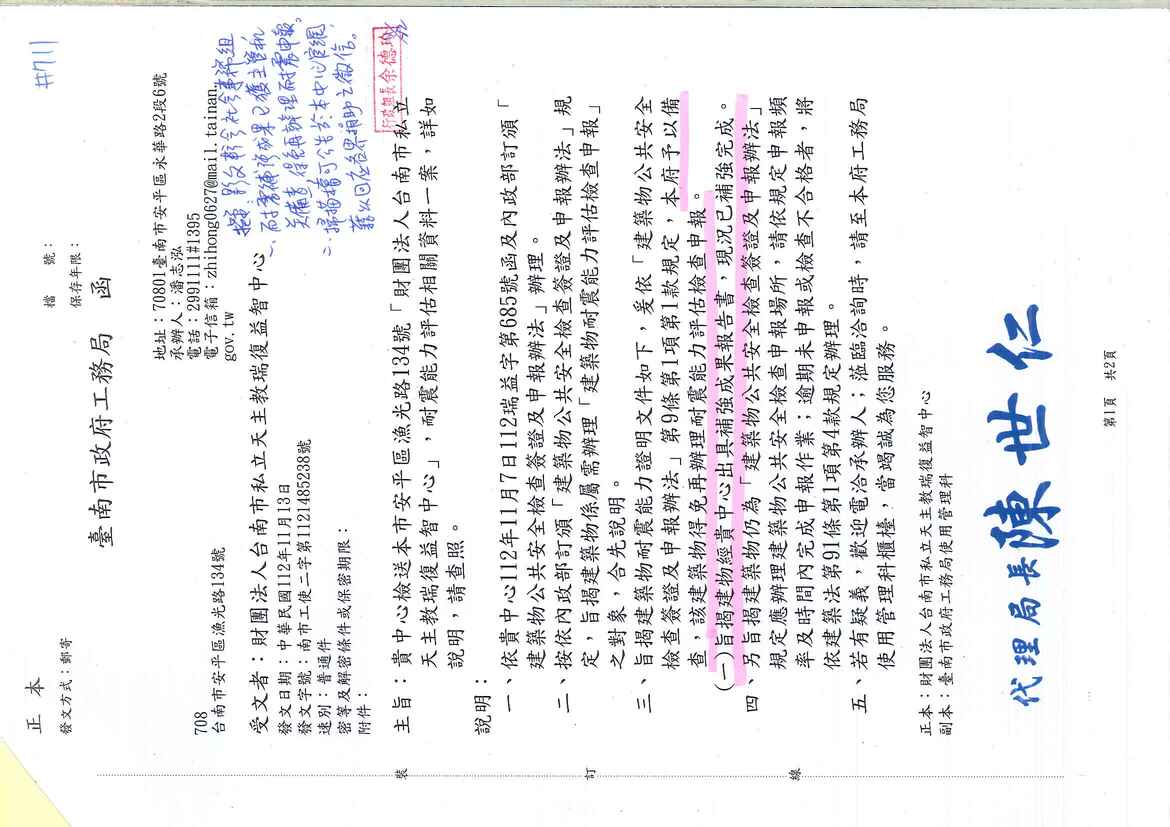 正本
發文方式：郵寄
檔　　號：
保存年限：
#711
臺南市政府工務局　函
地址：70801臺南市安平區永華路2段6號
承辦人：潘志泓
電話：2991111#1395
電子信箱：zhihong0627@mail.tainan.
gov.tw
708
台南市安平區漁光路134號
受文者：財團法人台南市私立天主教瑞復益智中心
發文日期：中華民國112年11月13日
發文字號：南市工使二字第1121485238號
速別：普通件
密等及解密條件或保密期限：
附件：
一、耐震補強成果已獲主管機
關備查，得免再辦理耐震申報。
二、掃描檔可公告於本中心官網，
行政組長余德瑜
主旨：貴中心檢送本市安平區漁光路134號「財團法人台南市私立
天主教瑞復益智中心」，耐震能力評估相關資料一案，詳如
說明，請查照。
說明：
一、依貴中心112年11月7日112瑞益字第685號函及內政部訂頒「
建築物公共安全檢查簽證及申報辦法」辦理。
二、按依內政部訂頒「建築物公共安全檢查簽證及申報辦法」規
定，旨揭建築物係屬需辦理「建築物耐震能力評估檢查申報」
之對象，合先說明。
三、旨揭建築物耐震能力證明文件如下，爰依「建築物公共安全
檢查簽證及申報辦法」第9條第1項第1款規定，本府予以備
查，該建築物得免再辦理耐震能力評估檢查申報。
(一)旨揭建物經貴中心出具補強成果報告書，現況已補強完成。
四、另旨揭建築物仍為「建築物公共安全檢查簽證及申報辦法」
規定應辦理建築物公共安全檢查申報場所，請依規定申報頻
率及時間內完成申報作業；逾期未申報或檢查不合格者，將
依建築法第91條第1項第4款規定辦理。
五、若有疑義，歡迎電洽承辦人；蒞臨洽詢時，請至本府工務局
使用管理科櫃檯，當竭誠為您服務。
正本：財團法人台南市私立天主教瑞復益智中心
副本：臺南市政府工務局使用管理科
代理局長陳世仁
裝
訂
線
第1頁　共2頁